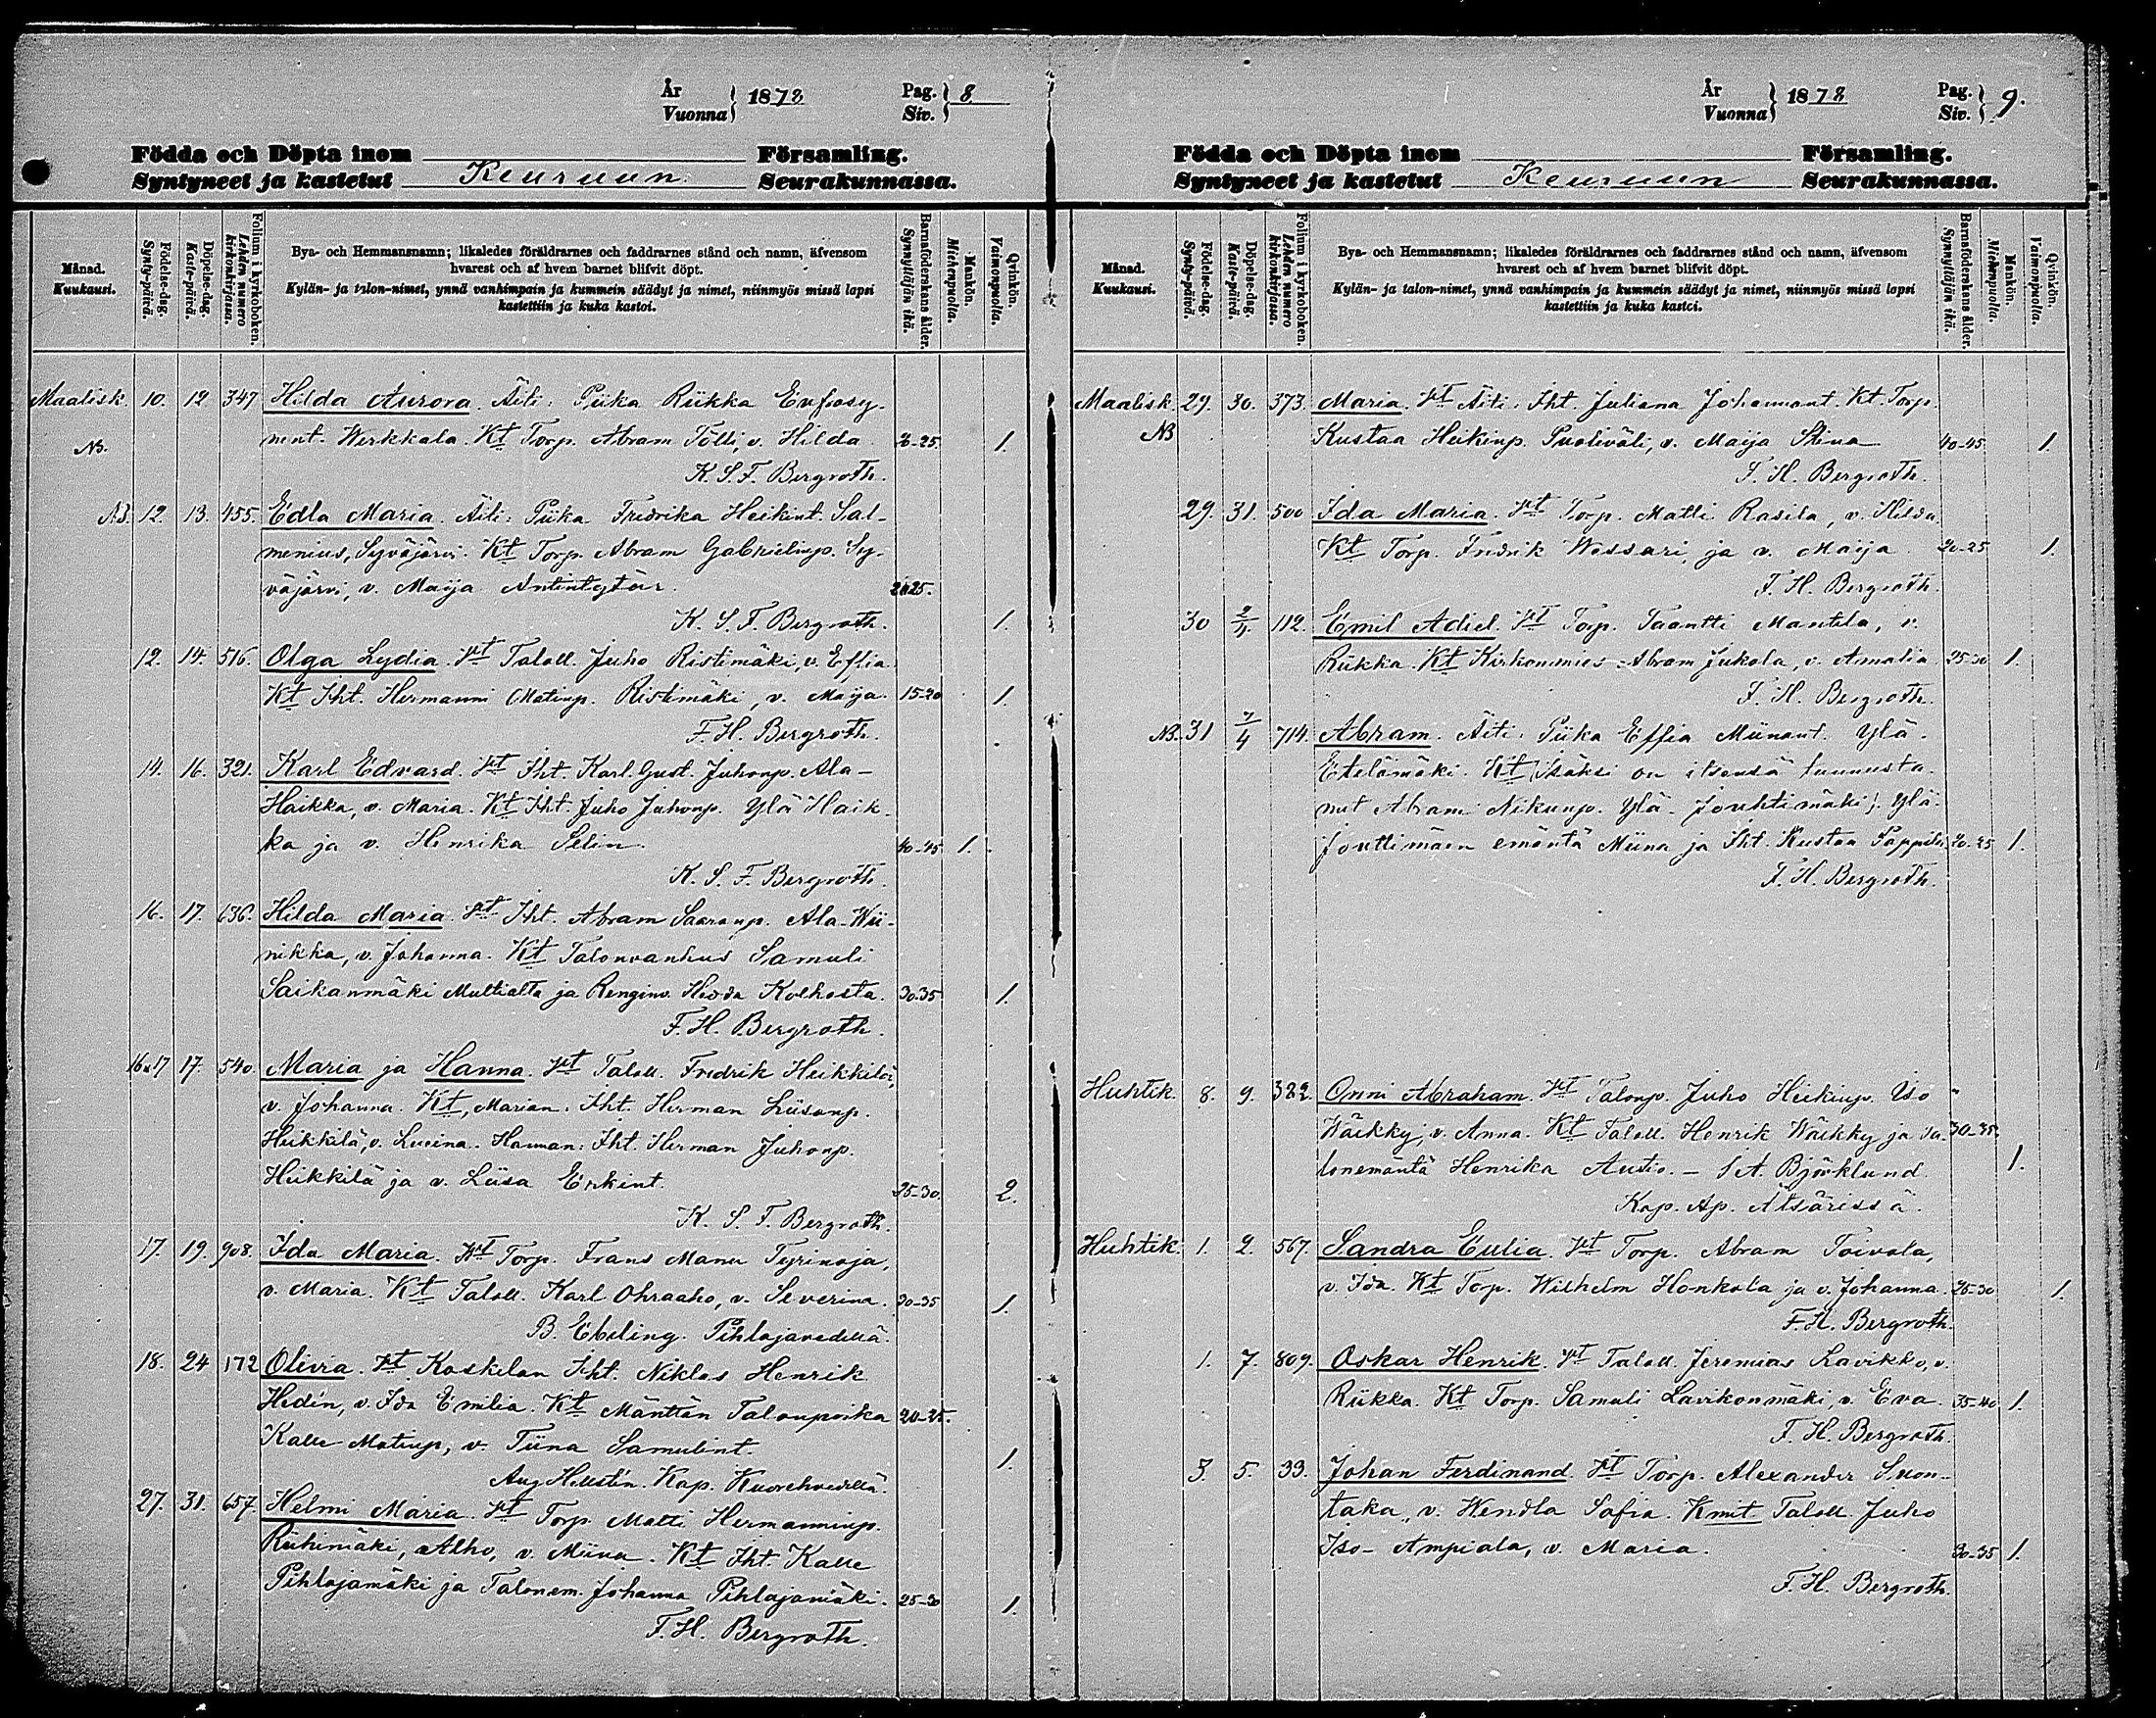 År
Vuonna } 1878
Pag.
Siv. } 8.
Födda och Döpta inom Församling.
Syntyneet ja kastetut Keuruun Seurakunnassa.
Månad.
Kuukausi.
Födelse-dag.
Synty-päivä.
Döpelse-dag.
Kaste-päivä.
Folium i kyrkoboken.
Lehden numero kirkonkirjassa.
Bya- och Hemmansnamn; likaledes föräldrarnes och faddrarnes stånd och namn, äfvensom
hvarest och af hvem barnet blifvit döpt.
Kylän- ja talon-nimet, ynnä vanhimpain ja kummein säädyt ja nimet, niinmyös missä lapsi
kastettiin ja kuka kastoi.
Barnaföderskans ålder.
Synnyttäjän ikä.
Mankön.
Miehenpuolia.
Qvinkön.
Vaimonpuolia.
Maalisk. 10. 12 347 Hilda Aurora. Äiti: Piika Riikka Eufrosy-
NB. nint. Werkkala. Kt Torp. Abram Tölli, v. Hilda 20-25. 1.
K. S. F. Bergroth.
NB. 12. 13. 455. Edla Maria. Äiti: Piika Fredrika Heikint. Sal-
menius, Syväjärvi. Kt Torp. Abram Gabrielinp. Sy-
väjärvi, v. Maija Antintytär. 20-25.
K. S. F. Bergroth. 1.
12. 14. 516. Olga Lydia. Vt Taloll. Juho Ristimäki, v. Effia
Kt Iht. Hermanni Matinp. Ristimäki, v. Maija. 15-20 1.
F. H. Bergroth.
14. 16. 321. Karl Edvard. Vt Iht. Karl Gust. Juhonp. Ala-
Haikka, v. Maria. Kt Iht. Juho Juhonp. Ylä Haik-
ka ja v. Henrika Selin. 40-45 1.
K. S. F. Bergroth.
16. 17. 636. Hilda Maria. Vt Iht. Abram Saaranp. Ala-Wii-
nikka, v. Johanna. Kt Talonvanhus Samuli
Saikanmäki Multialta ja Renginv. Hedda Kolhosta. 30-35 1.
F. H. Bergroth.
16 17 17. 540. Maria ja Hanna. Vt Taloll. Fredrik Heikkilä,
v. Johanna. Kt, Marian: Iht. Herman Liisanp.
Heikkilä, v. Lovina. Hannan: Iht. Herman Juhonp.
Heikkilä ja v. Liisa Erkint. 25-30. 2.
K. S. F. Bergroth.
17. 19. 908. Ida Maria. Vt Torp. Frans Manu Tyrinoja,
v. Maria. Kt Taloll. Karl Ohraaho, v. Severina. 30-35 1.
B. Ebeling. Pihlajavedellä
18. 24 172 Olivia. Vt Koskelan Iht. Niklas Henrik
Hedén, v. Ida Emilia. Kt Mänttän Talonpoika 20-25.
Kalle Matinp, v. Tiina Samulint. 1.
Aug Hellstén. Kap. Kuorehvedellä.
27. 31. 657 Helmi Maria. Vt Torp. Matti Hermanninp.
Riihimäki, Alho, v. Miina. Kt Iht. Kalle
Pihlajamäki ja Talonem. Johanna Pihlajamäki. 25-30 1.
F. H. Bergroth.
År
Vuonna } 1878
Pag.
Siv. } 9.
Födda och Döpta inom Församling.
Syntyneet ja kastetut Keuruun Seurakunnassa.
Månad.
Kuukausi.
Födelse-dag.
Synty-päivä.
Döpelse-dag.
Kaste-päivä.
Folium i kyrkoboken.
Lehden numero kirkonkirjassa.
Bya- och Hemmansnamn; likaledes föräldrarnes och faddrarnes stånd och namn, äfvensom
hvarest och af hvem barnet blifvit döpt.
Kylän- ja talon-nimet, ynnä vanhimpain ja kummein säädyt ja nimet, niinmyös missä lapsi
kastettiin ja kuka kastoi.
Barnaföderskans ålder.
Synnyttäjän ikä.
Mankön.
Miehenpuolia.
Qvinkön.
Vaimonpuolia.
Maalisk. 29. 30. 373. Maria. Vt Äiti: Iht. Juliana Johannant. Kt. Torp.
NB Kustaa Heikinp. Puoliväli, v. Maija Stina 40-45 1.
F. H. Bergroth.
29. 31. 500 Ida Maria. Vt Torp. Matti Rasila, v. Hilda
Kt Torp. Fredrik Wessari, ja v. Maija. 20-25 1.
F. H. Bergroth.
30 2/4 112. Emil Adiel. Vt Torp. Taavtti Mantila, v.
Riikka. Kt Kirkonmies Abram Jukola, v. Amalia 25-30 1.
F. H. Bergroth.
NB. 31 7/4 714. Abram. Äiti: Piika Effia Miinant. Ylä-
Etelämäki. Kt (Isäksi on itsensä tunnusta-
nut Abram Nikunp. Ylä-Jouhtimäki). Ylä-
Jouttimäen emäntä Miina ja Iht. Kustaa Pappila 20-25 1.
F. H. Bergroth.
Huhtik. 8. 9. 322. Onni Abraham. Vt Talonp. Juho Heikinp. Iso
Wäikky, v. Anna. Kt Taloll. Henrik Wäikky ja ta- 30-35.
lonemäntä Henrika Autio. — A. Björklund 1.
Kap. Ap. Ätsärissä.
Huhtik. 1. 2. 567. Sandra Eulia. Vt Torp. Abram Toivola,
v. Ida. Kt Torp. Wilhelm Honkola ja v. Johanna. 25-30 1.
F. H. Bergroth.
1. 7. 809. Oskar Henrik. Vt Taloll. Jeremias Lavikko, v.
Riikka. Kt Torp. Samuli Lavikonmäki, v. Eva. 35-40 1.
F. H. Bergroth.
3. 5. 33. Johan Ferdinand. Vt Torp. Alexander Suon-
taka, v. Wendla Sofia. Kmit. Taloll. Juho
Iso-Ampiala, v. Maria. 30-35 1.
F. H. Bergroth.